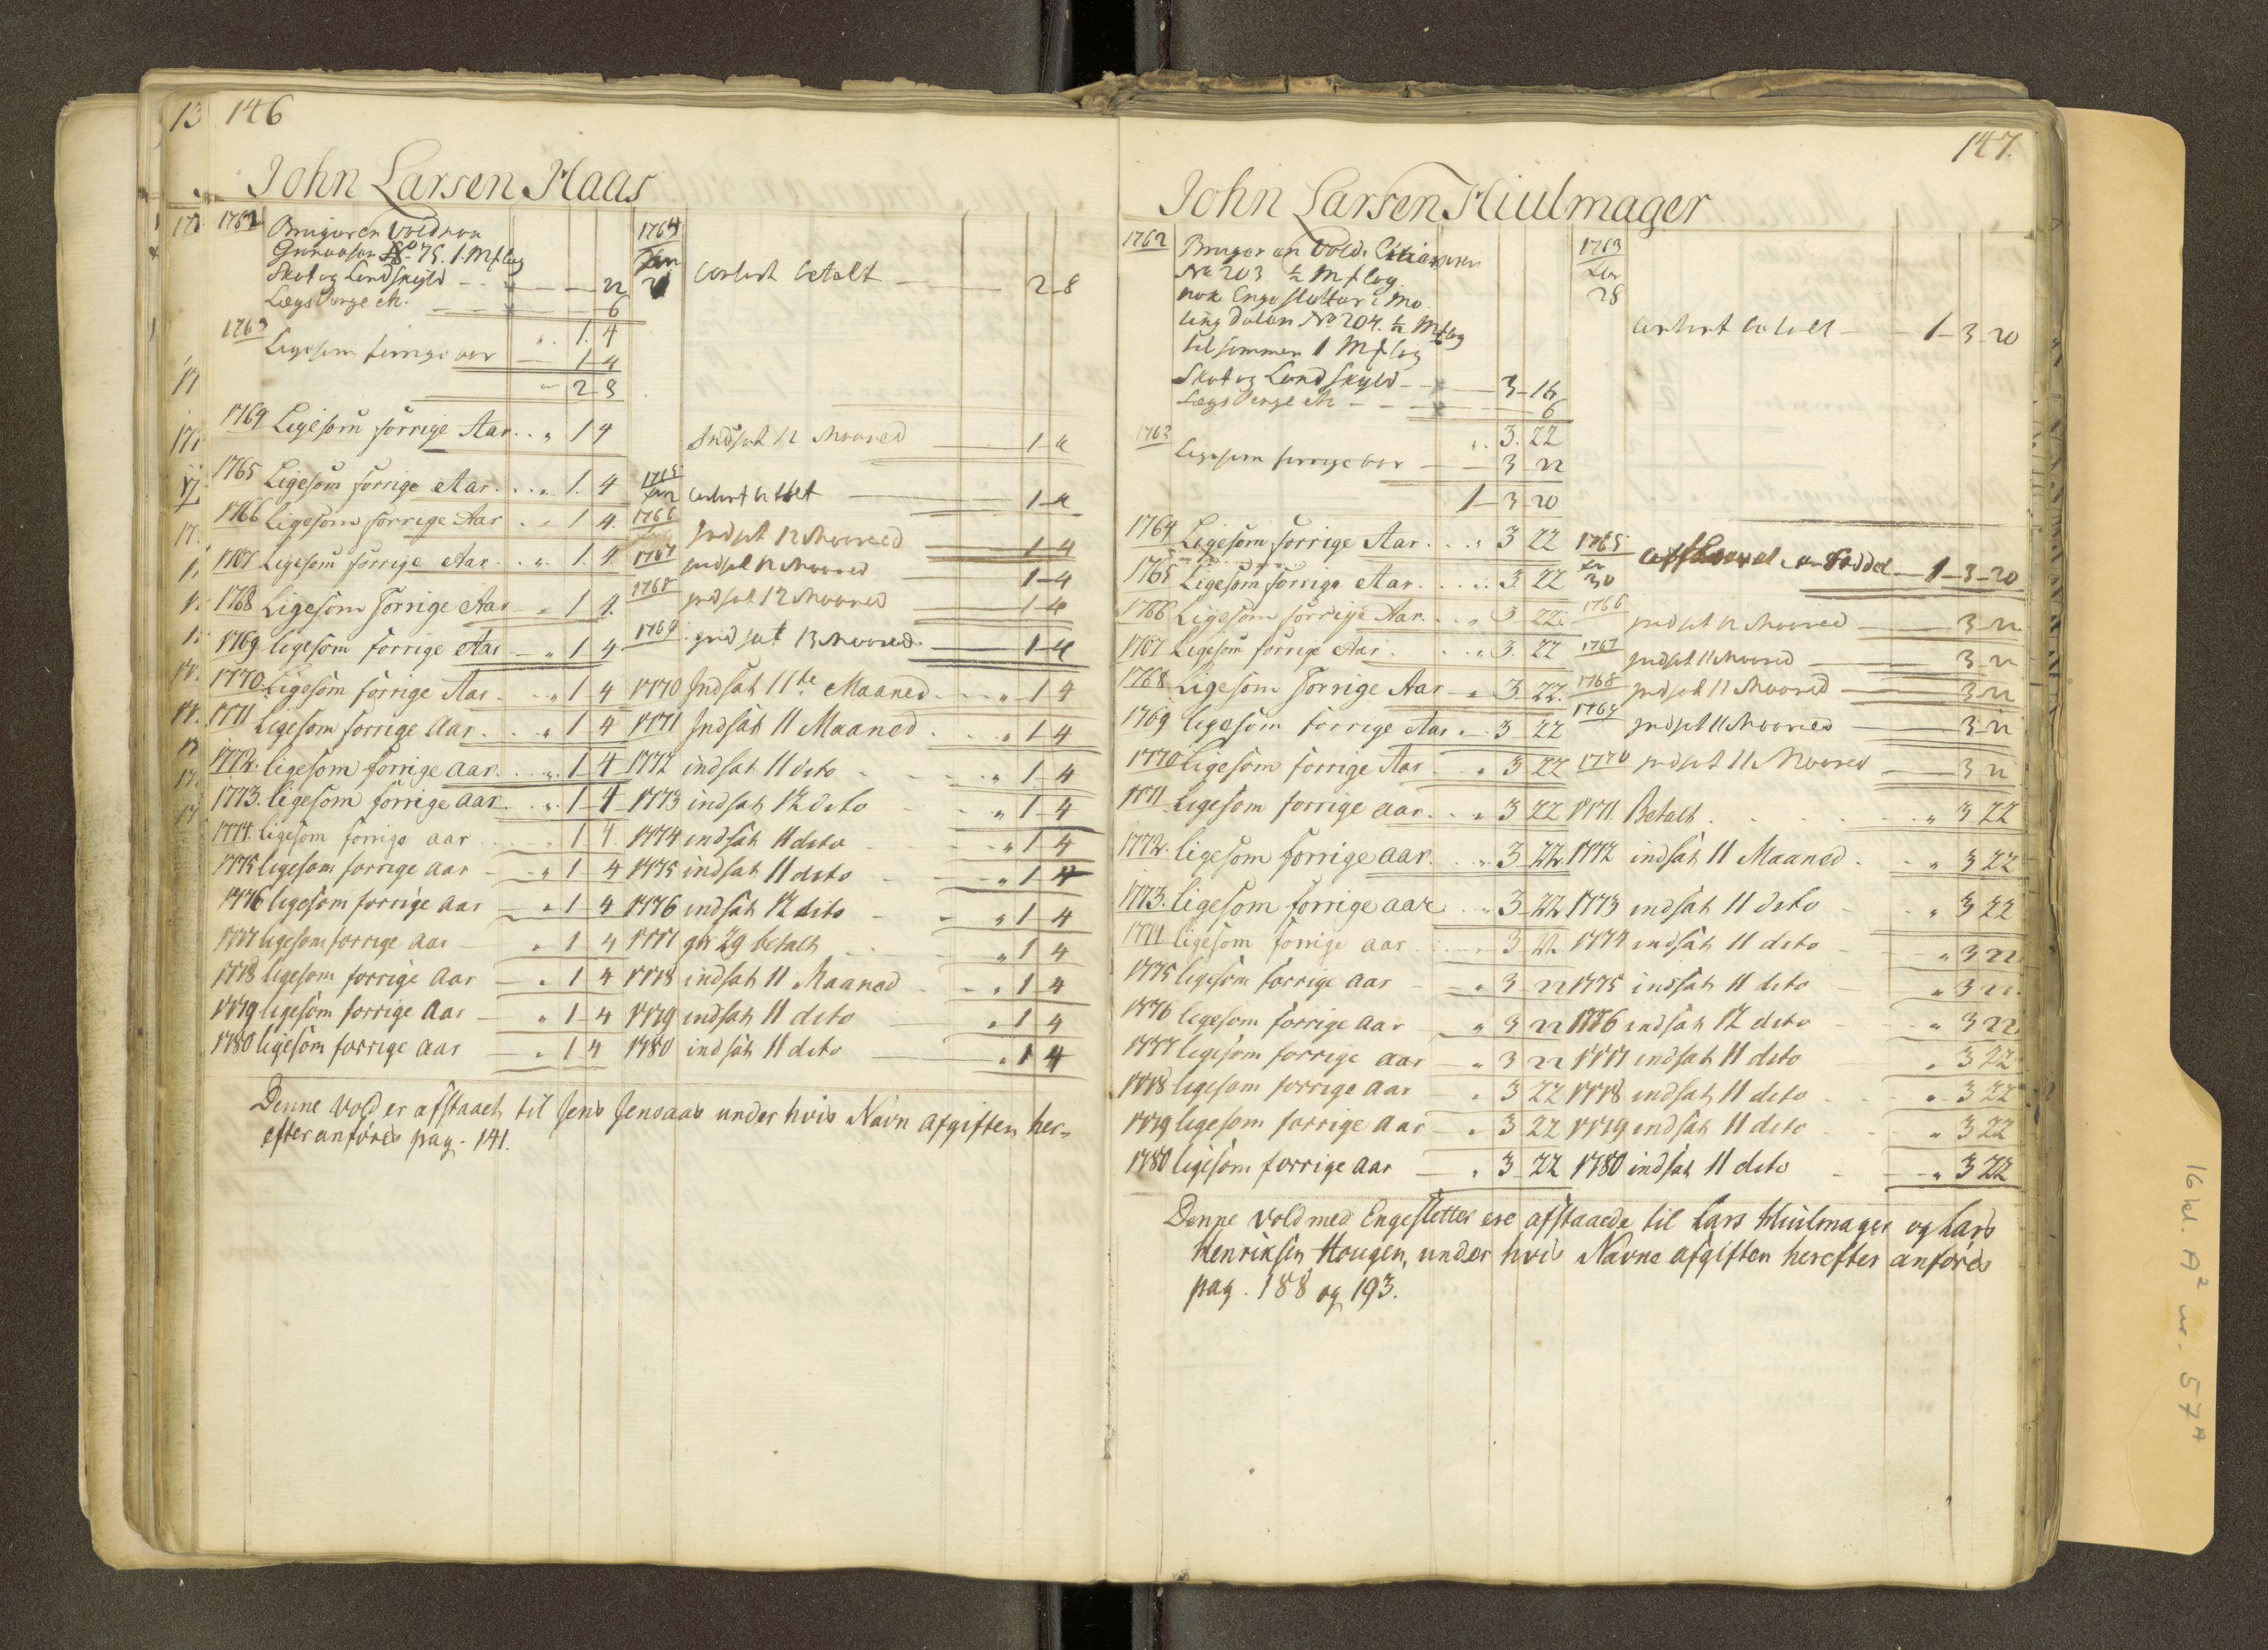 13 146
John Larsen Haas
1762 Bruger en Vold
No 75. 1. Mfl
Skat og Landskyld 22
6
" 1. 4
1763 Ligesom forrige aar 1-4
" 2-8
1764 Ligesom forrige Aar . . " 1 4
1765 Ligesom forrige Aar . . . " 1. 4
1766 Ligesom forrige Aar . . 1 4.
1767 Ligesom forrige Aar . . ". 1. 4
1768 Ligesom forrige Aar " 1 4.
1769 ligesom forrige Aar " 1 4
1770. Ligesom forrige Aar . . " 1 4
1771 Ligesom forrige Aar . . . " 1 4
1772. ligesom forrige aar. . . ". 1-4
1773. ligesom forrige aar. . ". 1-4
1774. ligesom forrige aar " 1 4
1775 ligesom forrige aar " 1 4
1776 ligesom forrige aar " 1 4
1777 ligesom forrige aar " 1 4
1778 ligesom forrige aar " 1 4
1779 ligesom forrige aar " 1-4
1780 ligesom forrige aar " 1 4
1764
Jan
betalt 2-8
Indsat 12 Maaned 1-4
1765
Jan
1-4
1766 Indsat 12 Maaned 1-4
1767 Indsat 12 Maaned 1-4
1768 Indsat 12 Maaned 1-4
1769 Indsat 13 Maaned. 1-4
1770 Indsat 11te Maaned " 1 4
1771 Indsat 11 Maaned . . . " 1 4
1772 indsat 11 dito " 1 4
1773 indsat 12 dito " 1-4
1774 indsat 11 dito " 1 4
1775 indsat 11 dito " 1 4
1776 indsat 12 dito " 1 4
1777 betalt " 1 4
1778 indsat 11 Maaned " 1 4
1779 indsat 11 dito " 1 4
1780 indsat 11 dito " 1 4
Denne Vold er afstaaet til Jens Jensaas under hvis Navn afgiften her-
efter anføres pag. 141.
147.
John Larsen Hiulmager
1762 Bruger en Vold
No 203 ½ Mfl
nok Engesletter i Mo
ling dalen No 204. ½ Mfl
tilsammen 1 Mfl
Skat og Landskyld 3-16
6
" 3. 22
1763 Ligesom forrige aar 3 22
1-3-20
1764 Ligesom forrige Aar . . . " 3 22
1765 Ligesom forrige Aar . . . " 3. 22
1766 Ligesom forrige Aar . . . " 3 22.
1767 Ligesom forrige Aar . . . " 3. 22
1768 Ligesom forrige Aar " 3 22.
1769 ligesom forrige Aar " 3 22
1770 ligesom forrige Aar " 3 22
1771 Ligesom forrige aar . . " 3 22
1772. ligesom forrige aar. . . ". 3-22
1773. ligesom forrige aar . . " 3-22
1774 ligesom forrige aar " 3-22
1775 ligesom forrige aar " 3 22
1776 ligesom forrige aar " 3 22
1777 ligesom forrige aar " 3 22
1778 ligesom forrige aar " 3 22
1779 ligesom forrige aar " 3 22
1780 ligesom forrige aar " 3 22
1763
28
1-3-20
1765
30
1-3-20
1766 Indsat 12 Maaned 3-22
1767 Indsat 11 Maaned 3-22
1768 Indsat 11 Maaned 3-22
1769 Indsat 11 Maaned 3-22
1770 Indsat 11 Maaned 3 22
1771 Betalt . . . . . " 3 22
1772 indsat 11 Maaned . . " 3 22
1773 indsat 11 dito " 3 22
1774 indsat 11 dito " 3 22
1775 indsat 11 dito " 3 22
1776 indsat 12 dito " 3 22
1777 indsat 11 dito " 3 22
1778 indsat 11 dito " 3 22
1779 indsat 11 dito " 3 22
1780 indsat 11 dito " 3 22
Denne Vold med Engesletter ere afstaaede til Lars Hiulmager og Lars
Henriksen Hougen, under hvis Navne afgiften herefter anføres
pag. 188 og 193.
16 kl. A² nr. 57ᴬ